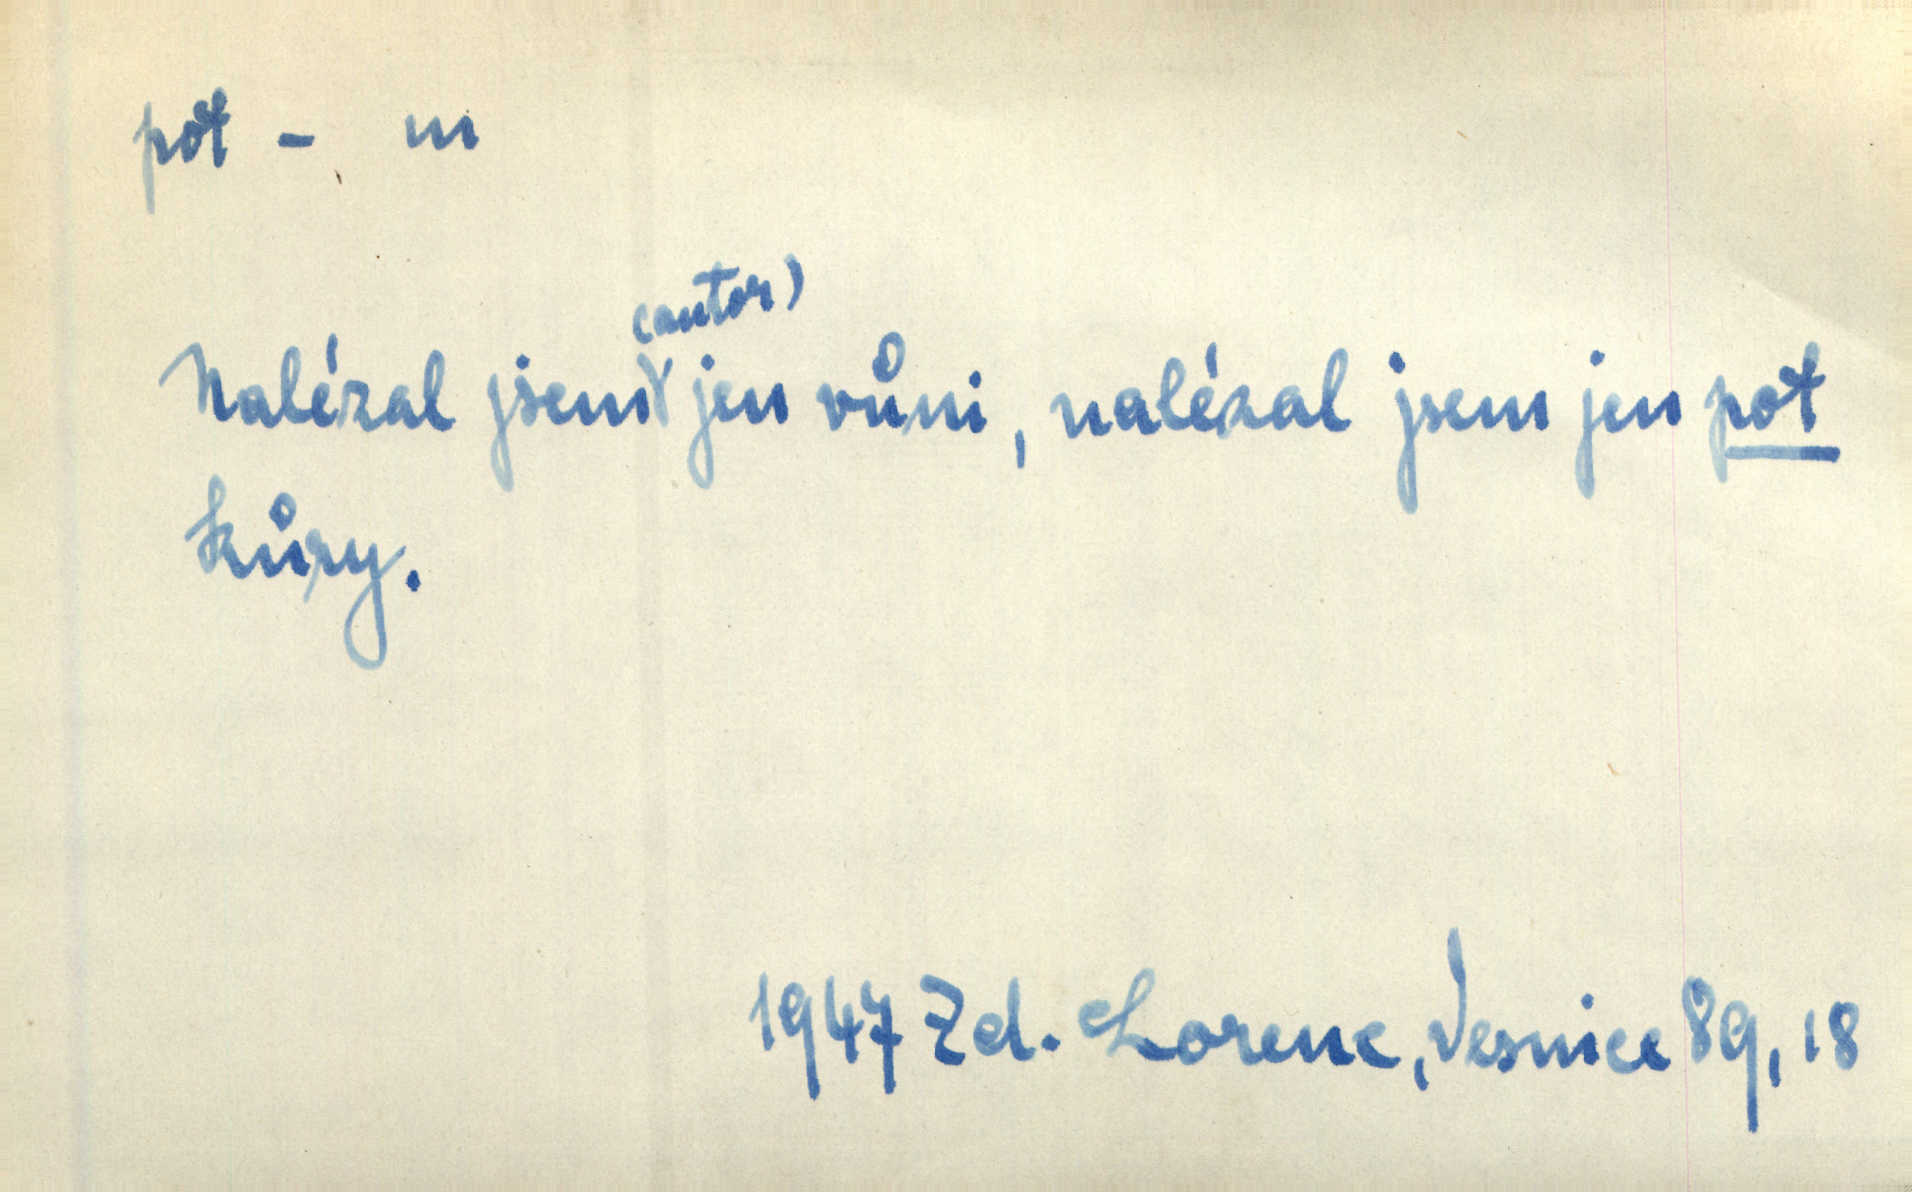 pot - m
(autor)
Nalézal jsem jen vůni, nalézal jsem jen pot
kůry.
1947 Zd. Lorenc, Vesnice 89, 18